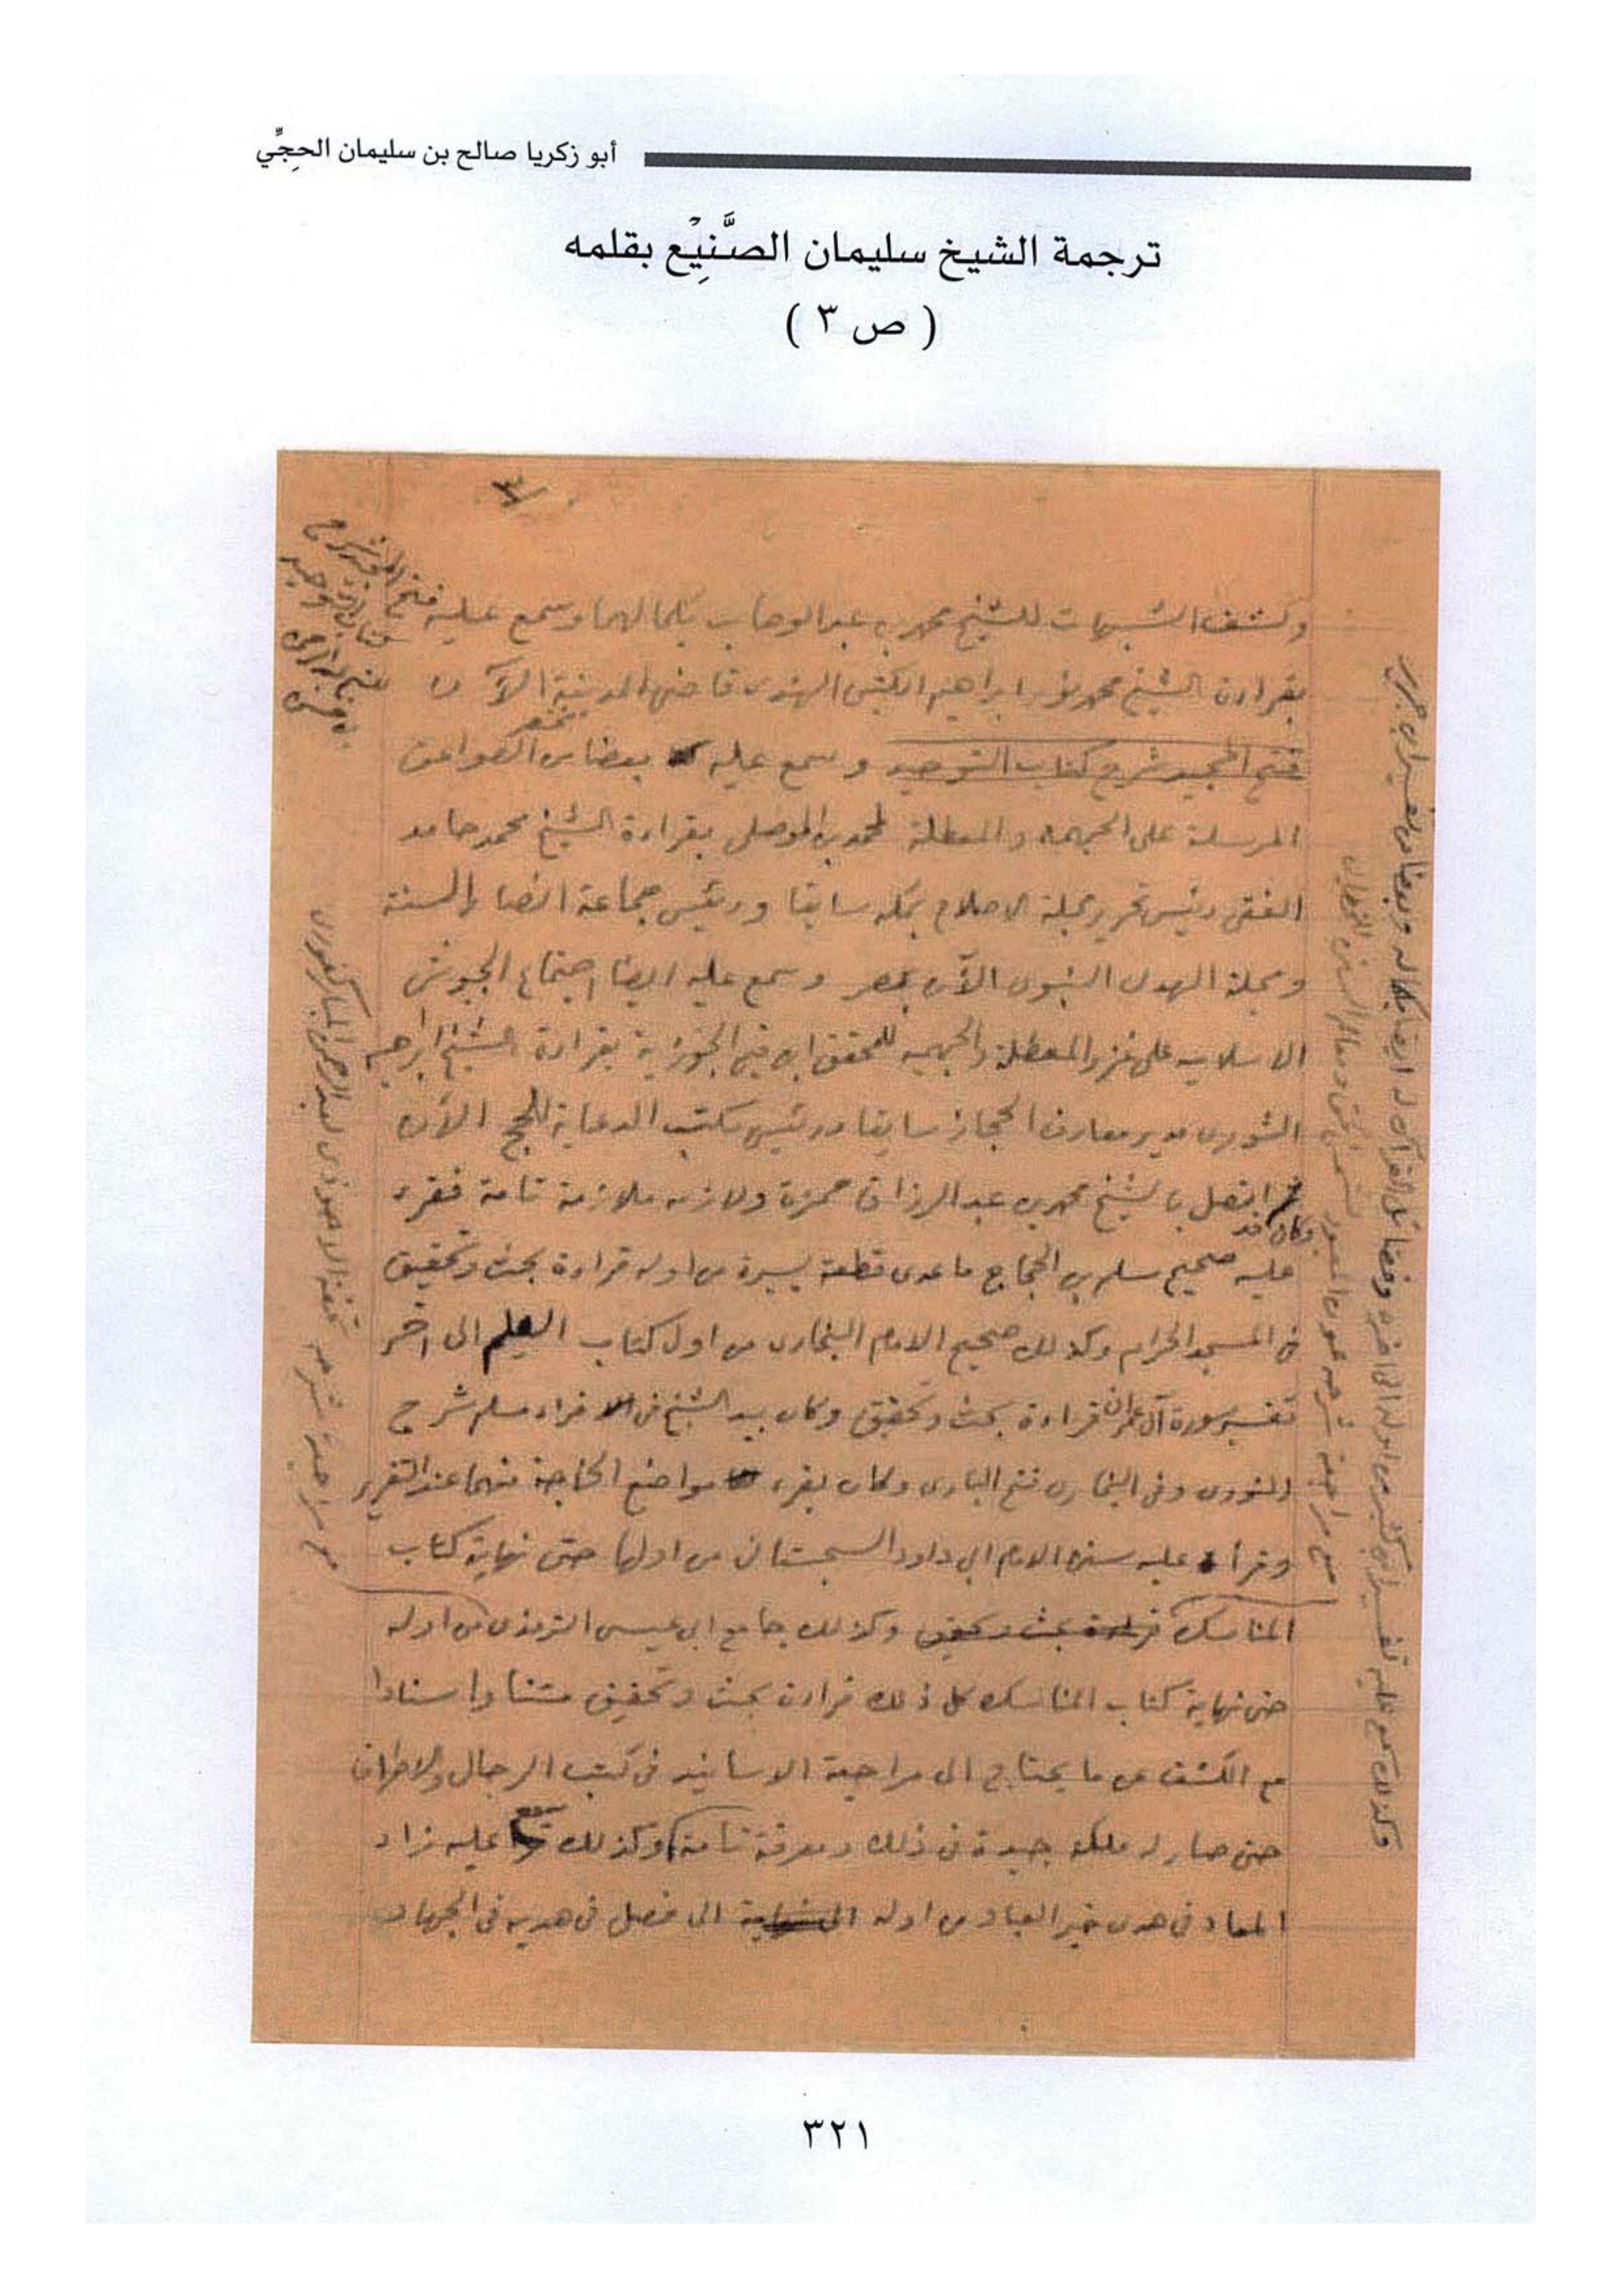 أبو زكريا صالح بن سليمان الحجِّي
ترجمة الشيخ سليمان الصَّنِيْع بقلمه
( ص ٣ )
٣
وكشف الشبهات للشيخ محمد بن عبد الوهاب بكمالهما وسمع عليه
بقراءة الشيخ محمد نور ابراهيم الكتبي الهندى قاضى المدينة الآن
فتح المجيد شرح كتاب التوحيد وسمع عليه بعضا من مختصر الصواعق
المرسلة على الجهمية والمعطلة لمحمد بن الموصلى بقراءة الشيخ محمد حامد
الفقى رئيس تحرير مجلة الاصلاح بمكه سابقا ورئيس جماعة انصار السنة
ومجلة الهدى النبوى الآن بمصر وسمع عليه ايضا اجتماع الجيوش
الاسلاميه على غزو المعطلة والجهميه للمحقق ابن قيم الجوزية بقراءة الشيخ ابراهيم
الشورى مدير معارف الحجاز سابقا ورئيس مكتب الدعاية للحج الآن
ثم اتصل بالشيخ محمد بن عبد الرزاق حمزة ولازمه ملازمة تامة فقرء
وكان قد
عليه صحيح مسلم بن الحجاج ماعدى قطعة يسيرة من اوله قراءة بحث وتحقيق
فى المسجد الحرام وكذلك صحيح الامام البخارى من اول كتاب العلم الى آخر
تفسير سورة آل عمران قراءة بحث وتحقيق وكان بيد الشيخ فى الاقراء مسلم شرح
النووى وفى البخارى فتح البارى وكان يقرء مواضع الحاجة منهما عند التقرير
وقرأ عليه سنن الامام ابى داود السجستانى من اولها حتى نهاية كتاب
المناسك قراءة بحث وتحقيق وكذلك جامع ابى عيسى الترمذى من اوله
حتى نهاية كتاب المناسك كل ذلك قراءة بحث وتحقيق متنا واسنادا
مع الكشف عن ما يحتاج الى مراجعة الاسانيد فى كتب الرجال والاطراف
حتى صار له ملكة جيدة فى ذلك ومعرفة تامة وكذلك سمع عليه زاد
المعاد فى هدى خير العباد من اوله الى نهاية الى فصل فى هديه فى الجهاد
مع مراجعة شرحه عون المعبود
مع مراجعة شرحه تحفة الاحوذى لعبد الرحمن المباركفورى
٣٢١